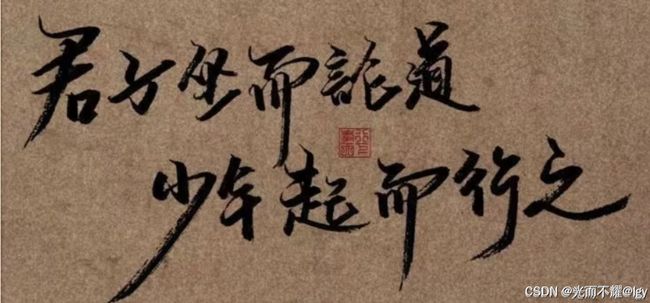 君子坐而論道
少年起而行之
CSDN @光而不耀@lgy